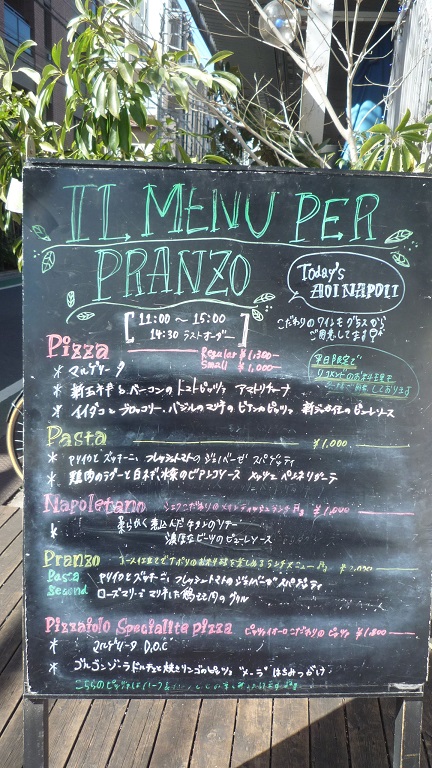 IL MENU PER
PRANZO
Today's
AOI NAPOLI
11:00 ～ 15:00
14:30 ラストオーダー
こだわりのワインをグラスから
ご用意してます
Pizza
Regular ¥1,300-
Small ¥1,000-
平日限定で
* マルゲリータ
* 新玉ネギとベーコンのトマトピッツァ アマトリチャーナ
* イイダコとブロッコリー、バジルのマリネのビアンカピッツァ
Pasta ¥1,000
* ヤリイカとズッキーニ、フレッシュトマトのジェノベーゼ スパゲッティ
* 鶏肉のラグーと白ネギ のビアンコソース メッツェ ペンネリガーテ
Napoletano シェフこだわりのメインディッシュランチ ¥1,600
* 柔らかく煮込んだ牛タンのソテー
濃厚なビーツのピューレソース
Pranzo コース仕立てでナポリのお料理を楽しめるランチメニュー
Pasta ヤリイカとズッキーニ、フレッシュトマトのジェノベーゼ スパゲッティ
Second ローズマリーでマリネした鶏モモ肉のグリル
Pizzaiolo Specialite pizza ピッツァイオーロこだわりのピッツァ ¥1,800
* マルゲリータ D.O.C
* ゴルゴンゾーラドルチェと焼きリンゴのピッツァ "メーラ" はちみつがけ
こちらのピッツァはハーフ